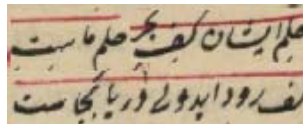 حلم ایشان کف بحر حلم ماست
کف رود اید ولی دریا بجاست